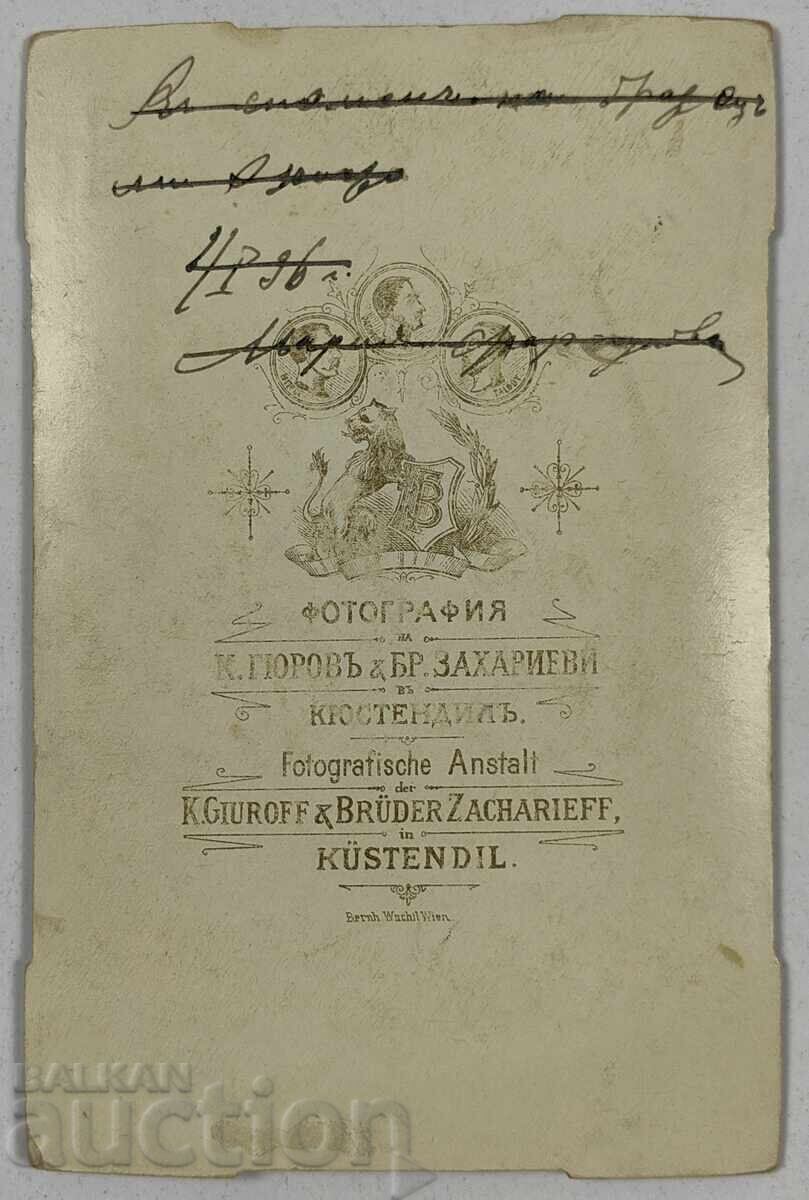 Въ споменъ на
4/V 96 г.
Мария
TALBOT
B
ФОТОГРАФИЯ
НА
К. ГЮРОВЪ & БР. ЗАХАРИЕВИ
ВЪ
КЮСТЕНДИЛЪ.
Fotografische Anstalt
der
K.GIUROFF & BRÜDER ZACHARIEFF,
in
KÜSTENDIL.
Bernh. Wachtl Wien.
BALKAN
auction